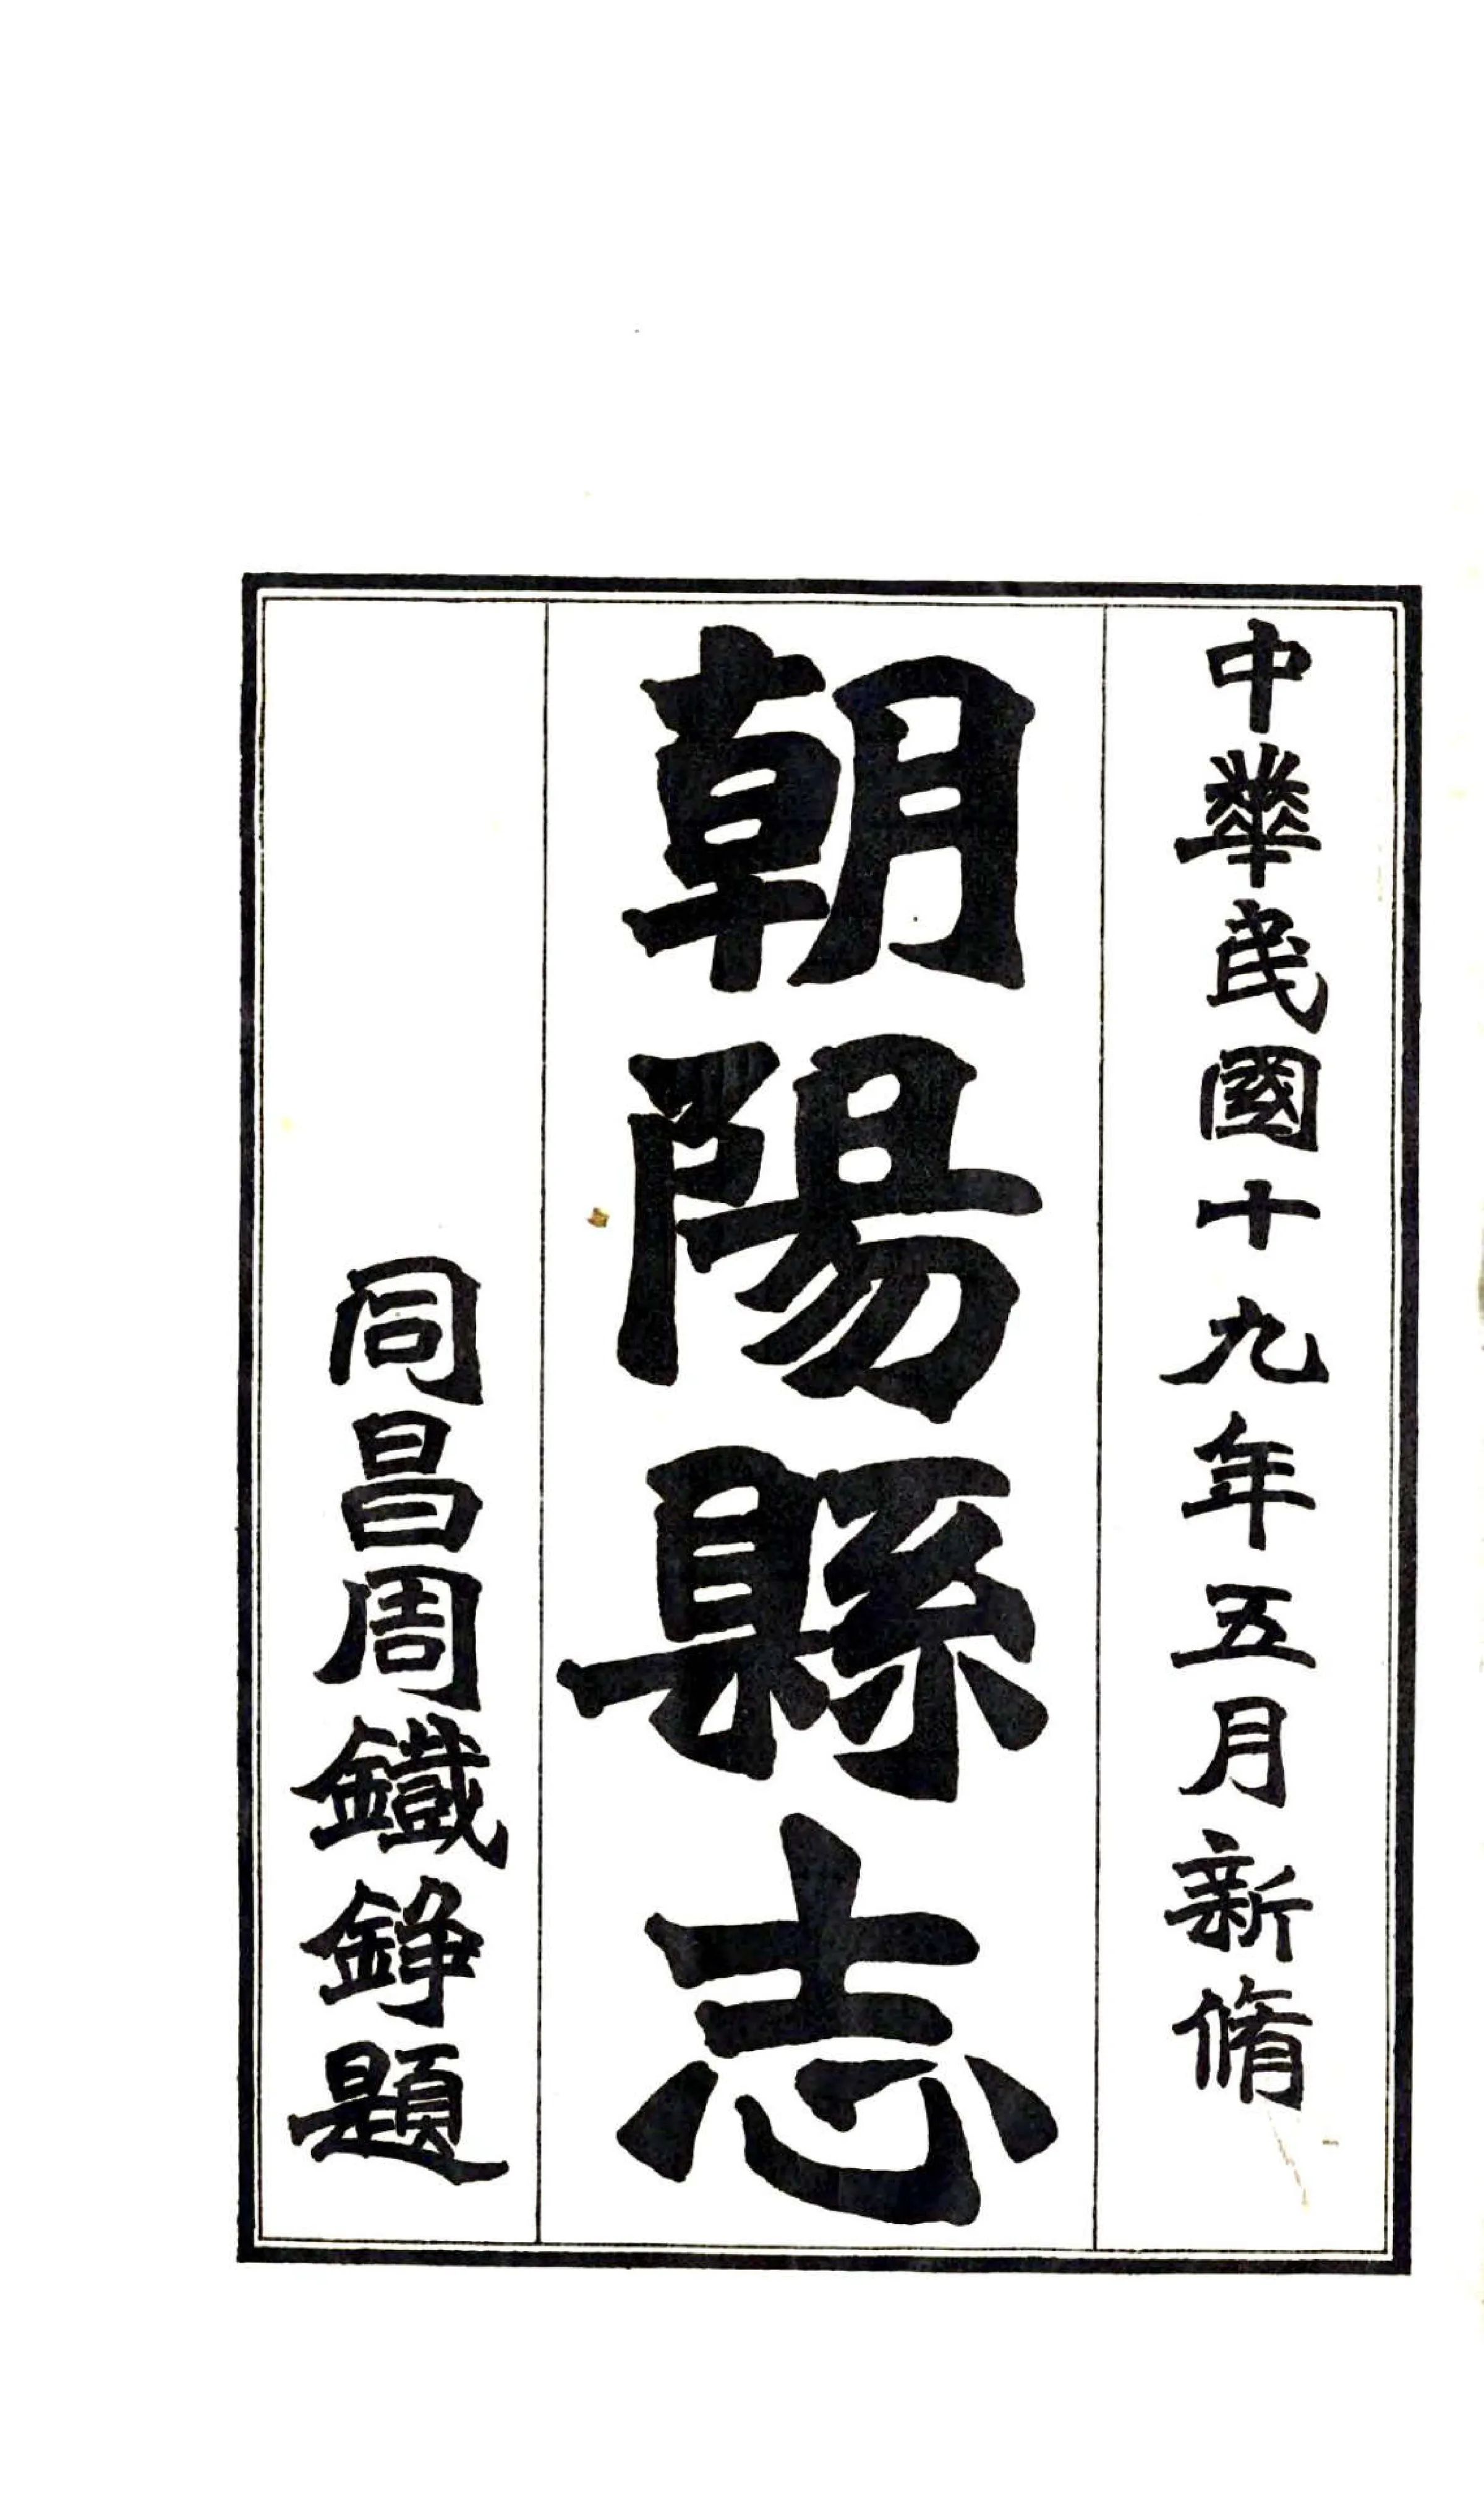 中華民國十九年五月新脩
朝陽縣志
同昌周鐵錚題